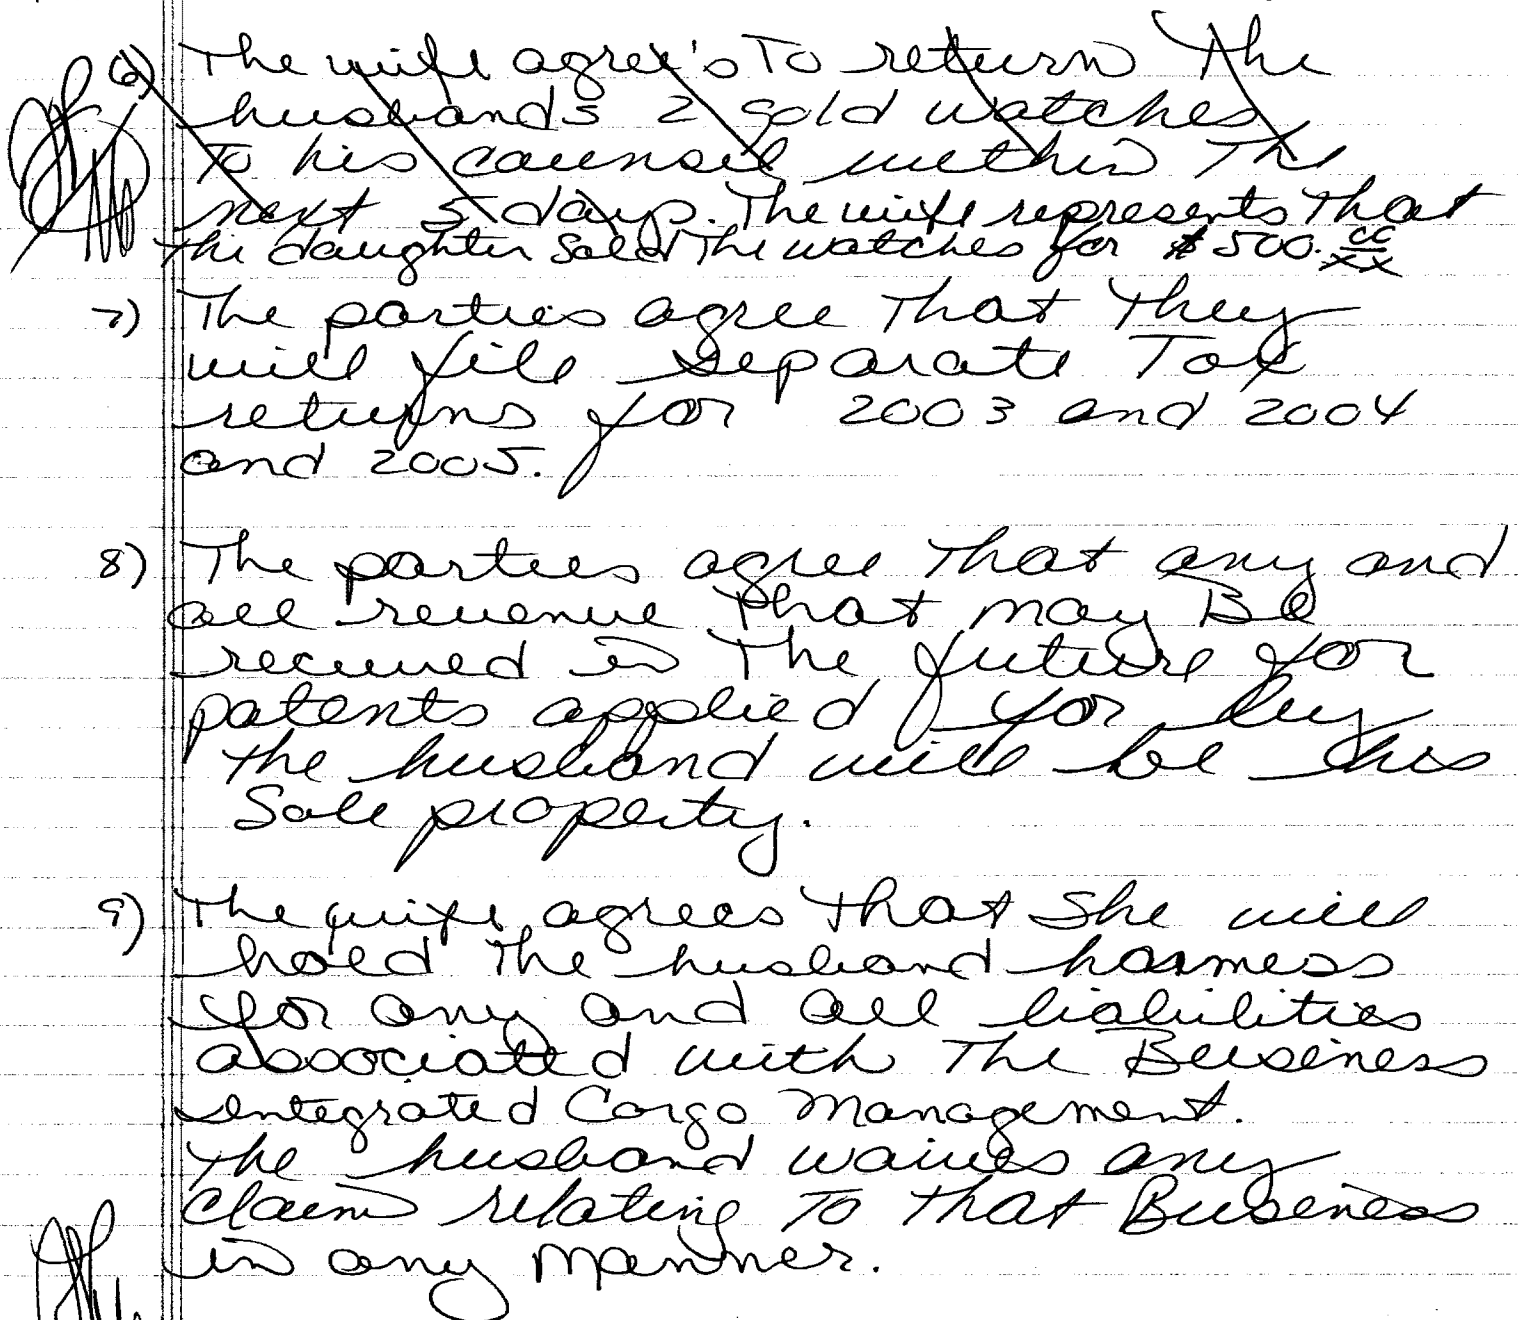 6) The wife agree's To return The
husbands 2 gold watches
To his counsel within The
next 5 days. The wife represents That
the daughter sold The watches for $500. cc/xx
7) The parties agree That They
will file separate Tax
returns for 2003 and 2004
and 2005.
8) The parties agree That any and
all revenue That may Be
received in The future for
patents applied for by
the husband will be his
Sole property.
9) The wife agrees That She will
hold The husband harmess
for any and all liabilities
associated with The Business
Integrated Cargo Management.
The husband waives any
claim relating To That Business
in any Manner.